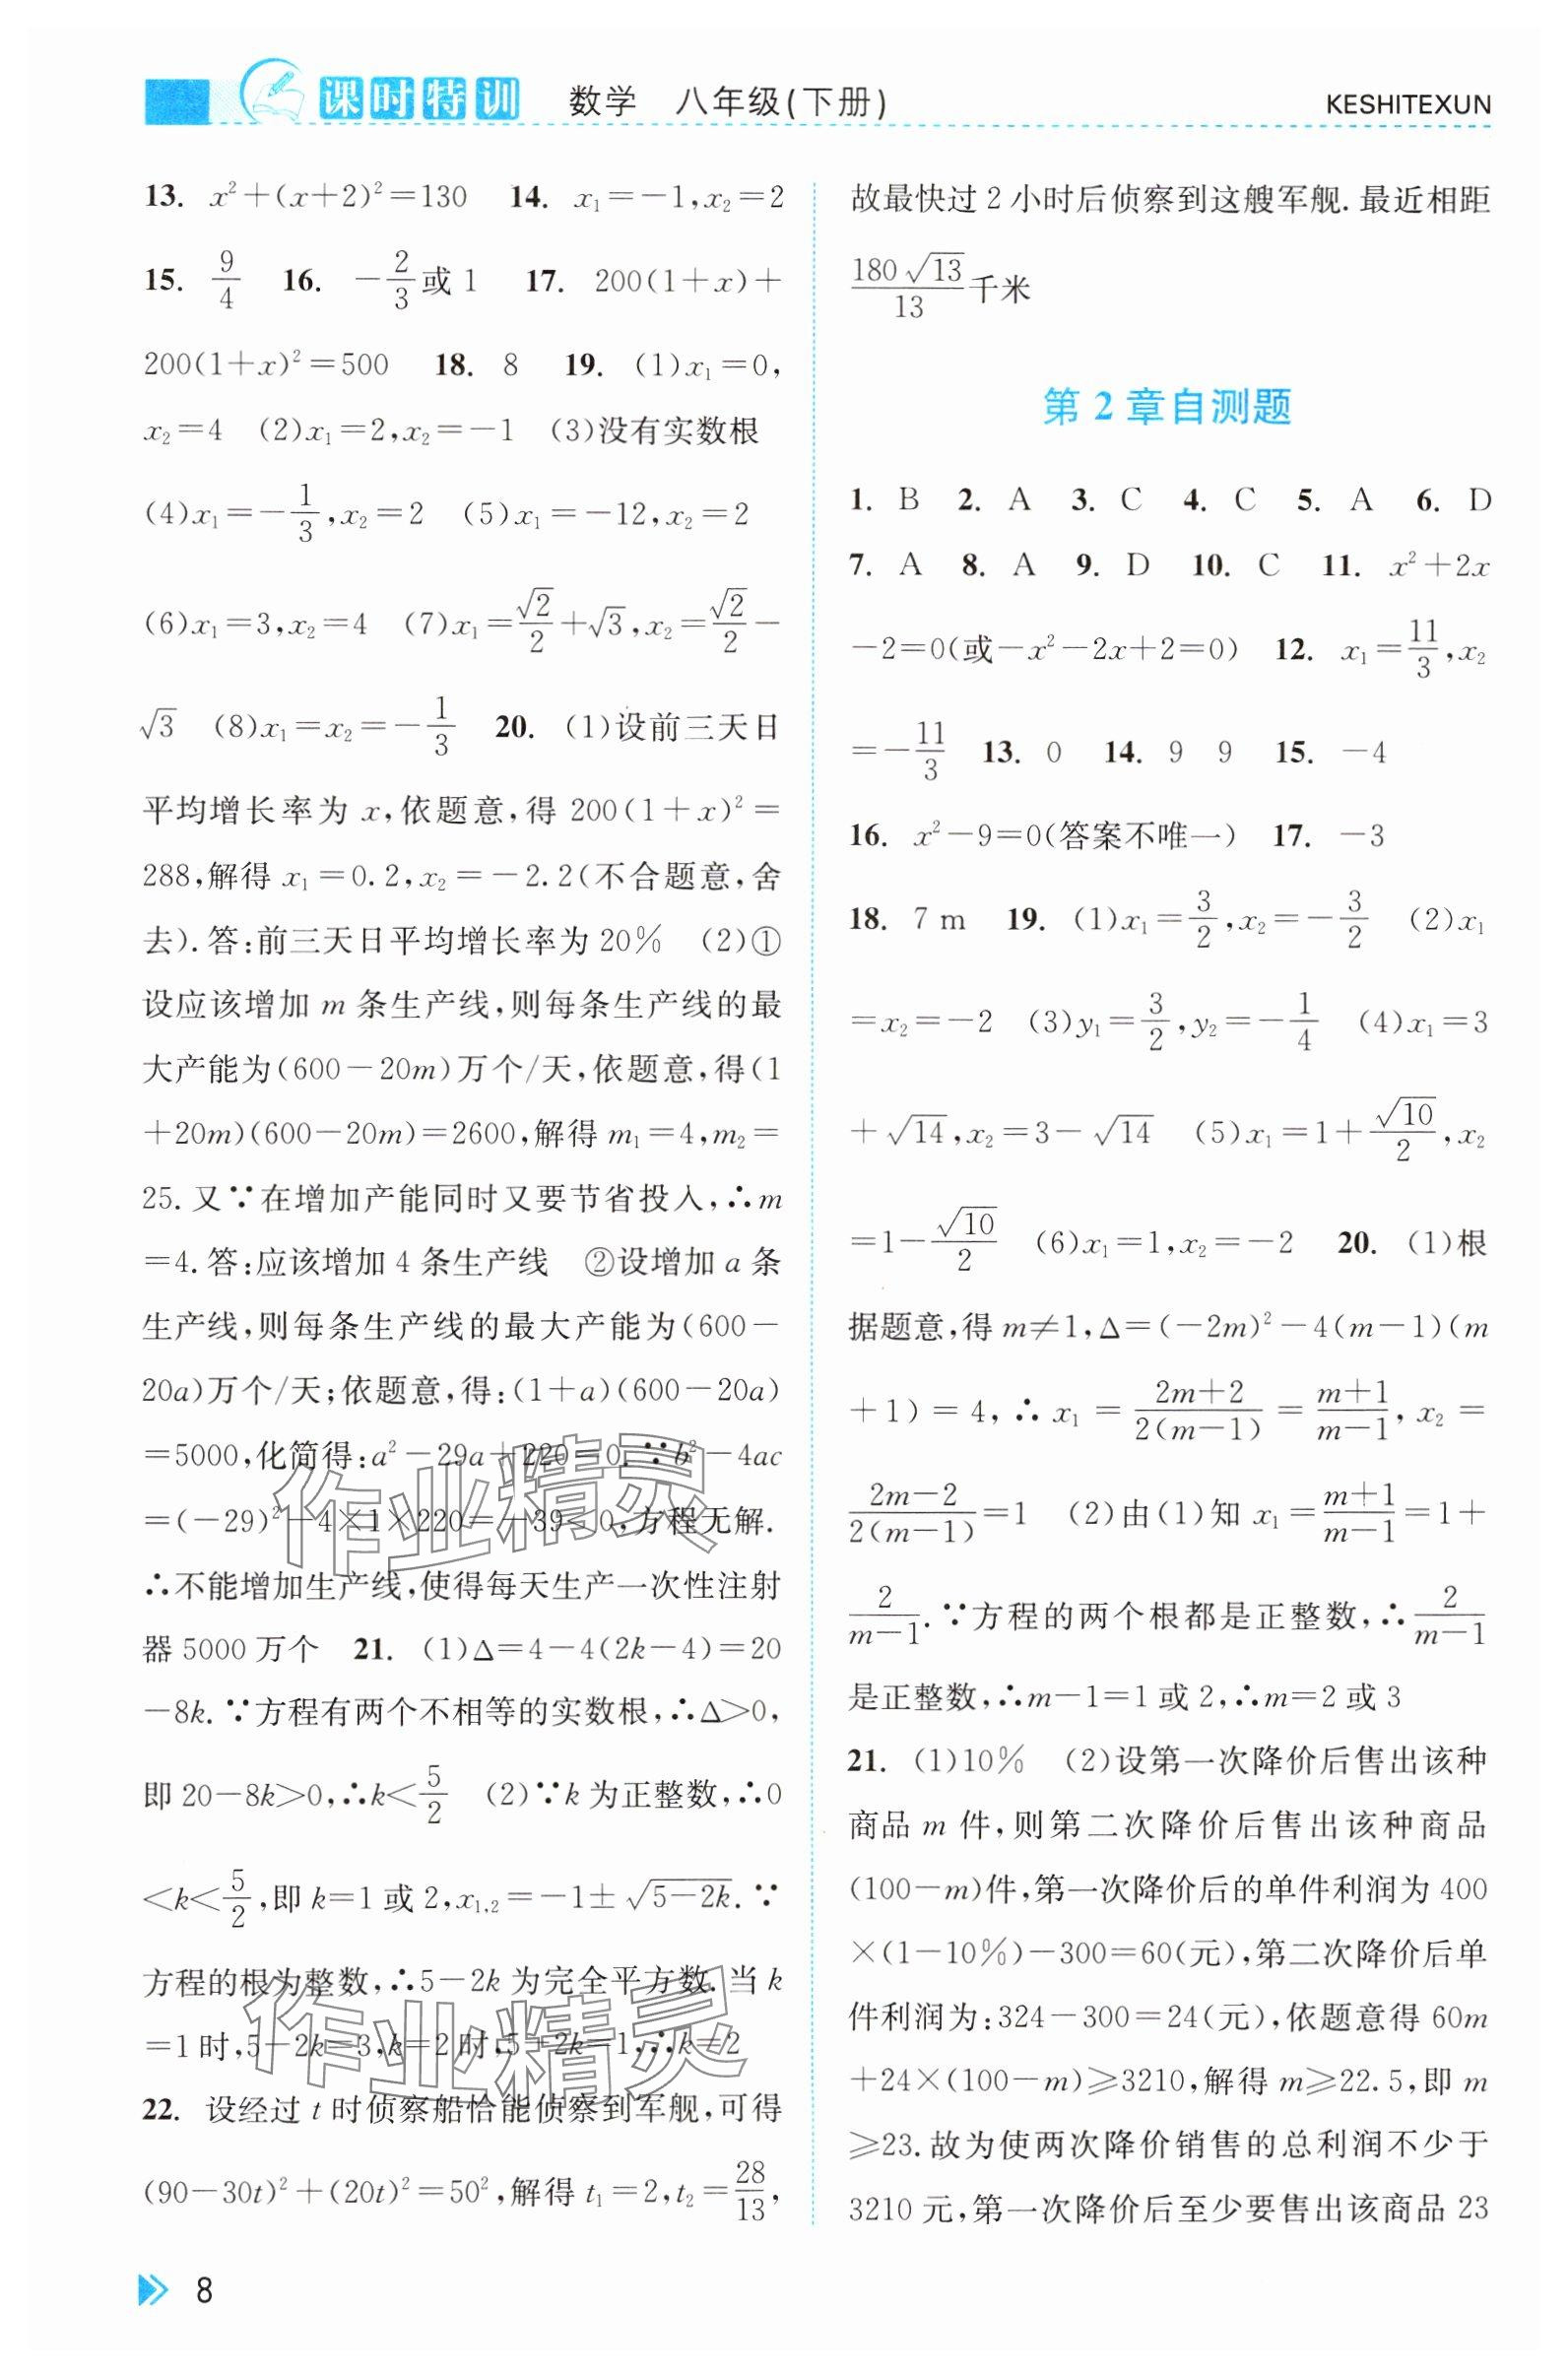 课时特训 数学 八年级(下册) KESHITEXUN
13. x²+(x+2)²=130 14. x₁=-1,x₂=2
15. 9/4 16. -2/3或1 17. 200(1+x)+
200(1+x)²=500 18. 8 19. (1)x₁=0,
x₂=4 (2)x₁=2,x₂=-1 (3)没有实数根
(4)x₁=-1/3,x₂=2 (5)x₁=-12,x₂=2
(6)x₁=3,x₂=4 (7)x₁=√2/2+√3,x₂=√2/2-
√3 (8)x₁=x₂=-1/3 20. (1)设前三天日
平均增长率为x,依题意,得200(1+x)²=
288,解得x₁=0.2,x₂=-2.2(不合题意,舍
去).答:前三天日平均增长率为20% (2)①
设应该增加m条生产线,则每条生产线的最
大产能为(600-20m)万个/天,依题意,得(1
+20m)(600-20m)=2600,解得m₁=4,m₂=
25.又∵在增加产能同时又要节省投入,∴m
=4.答:应该增加4条生产线 ②设增加a条
生产线,则每条生产线的最大产能为(600-
20a)万个/天;依题意,得:(1+a)(600-20a)
=5000,化简得:a²-29a+220=0.∵b²-4ac
=(-29)²-4×1×220=-39<0,方程无解.
∴不能增加生产线,使得每天生产一次性注射
器5000万个 21. (1)Δ=4-4(2k-4)=20
-8k.∵方程有两个不相等的实数根,∴Δ>0,
即20-8k>0,∴k<5/2 (2)∵k为正整数,∴0
<k<5/2,即k=1或2,x₁,₂=-1±√(5-2k).∵
方程的根为整数,∴5-2k为完全平方数.当k
=1时,5-2k=3,k=2时,5-2k=1,∴k=2
22. 设经过t时侦察船恰能侦察到军舰,可得
(90-30t)²+(20t)²=50²,解得t₁=2,t₂=28/13,
故最快过2小时后侦察到这艘军舰.最近相距
180√13/13千米
第2章自测题
1. B 2. A 3. C 4. C 5. A 6. D
7. A 8. A 9. D 10. C 11. x²+2x
-2=0(或-x²-2x+2=0) 12. x₁=11/3,x₂
=-11/3 13. 0 14. 9 9 15. -4
16. x²-9=0(答案不唯一) 17. -3
18. 7 m 19. (1)x₁=3/2,x₂=-3/2 (2)x₁
=x₂=-2 (3)y₁=3/2,y₂=-1/4 (4)x₁=3
+√14,x₂=3-√14 (5)x₁=1+√10/2,x₂
=1-√10/2 (6)x₁=1,x₂=-2 20. (1)根
据题意,得m≠1,Δ=(-2m)²-4(m-1)(m
+1)=4,∴x₁=(2m+2)/2(m-1)=(m+1)/(m-1),x₂=
(2m-2)/2(m-1)=1 (2)由(1)知x₁=(m+1)/(m-1)=1+
2/(m-1).∵方程的两个根都是正整数,∴2/(m-1)
是正整数,∴m-1=1或2,∴m=2或3
21. (1)10% (2)设第一次降价后售出该种
商品m件,则第二次降价后售出该种商品
(100-m)件,第一次降价后的单件利润为400
×(1-10%)-300=60(元),第二次降价后单
件利润为:324-300=24(元),依题意得60m
+24×(100-m)≥3210,解得m≥22.5,即m
≥23.故为使两次降价销售的总利润不少于
3210元,第一次降价后至少要售出该商品23
作业精灵
作业精灵
8